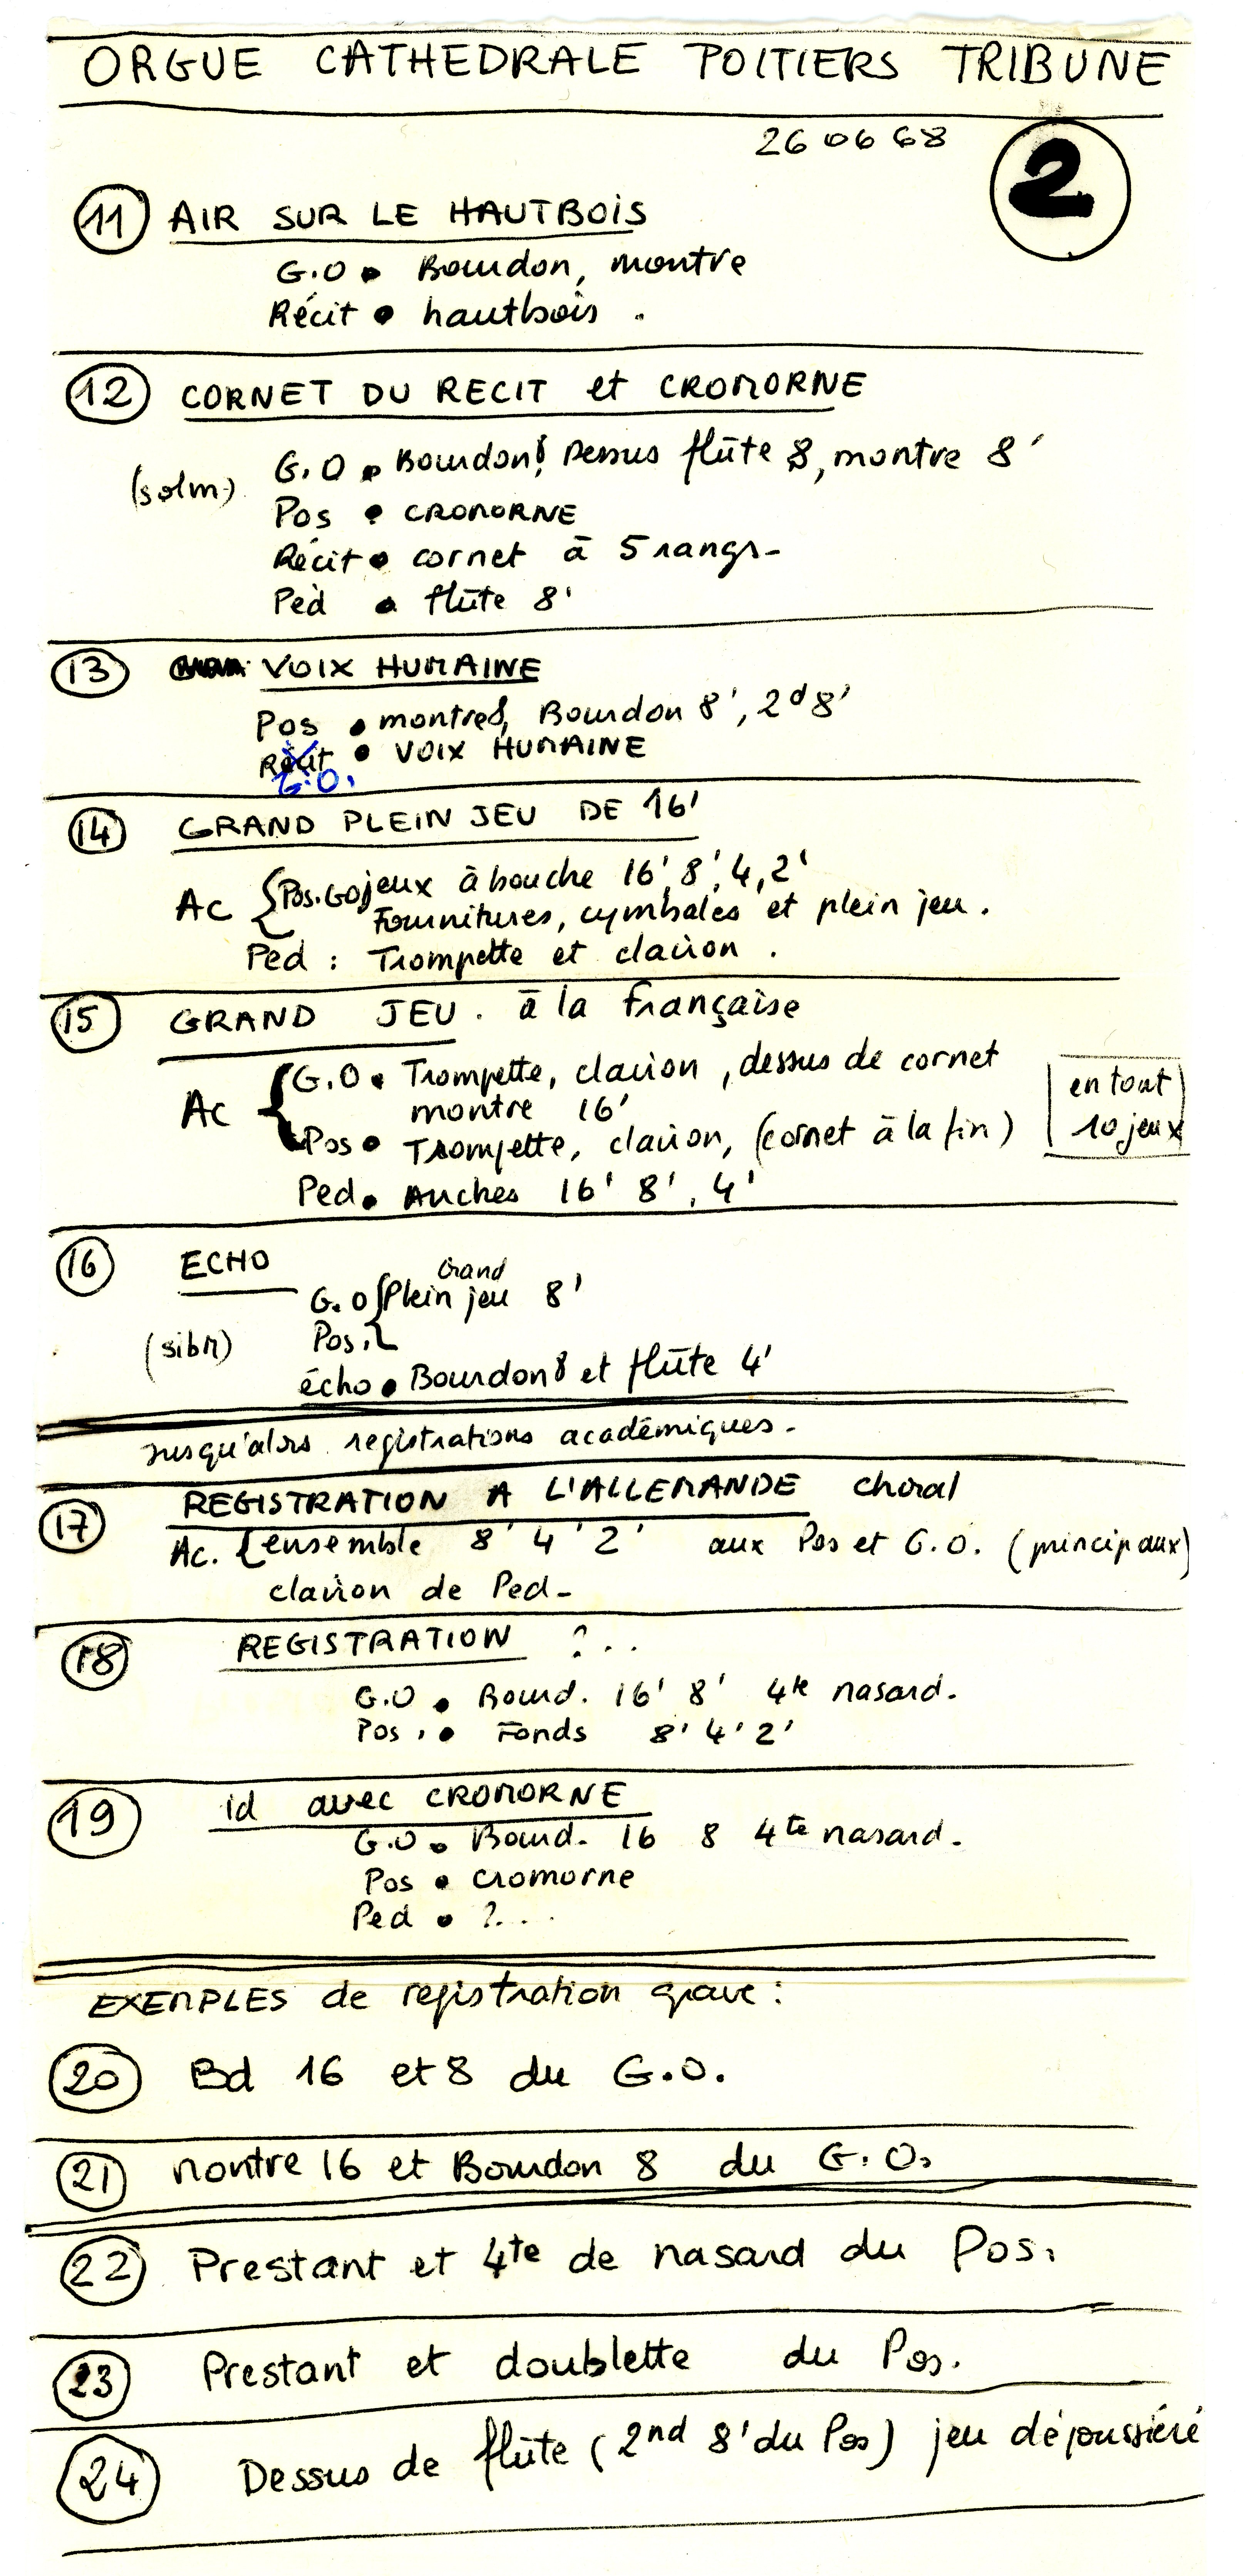 ORGUE CATHEDRALE POITIERS TRIBUNE
26 06 68
2
11 AIR SUR LE HAUTBOIS
G.O • Bourdon, montre
Récit • hautbois .
12 CORNET DU RECIT et CROMORNE
(solm) G.O • Bourdon 8', Dessus flûte 8, montre 8'
Pos • CROMORNE
Récit • cornet à 5 rangs-
Péd • flûte 8'
13 VOIX HUMAINE
Pos • montre 8, Bourdon 8', 2d 8'
Récit • VOIX HUMAINE
G.O.
14 GRAND PLEIN JEU DE 16'
Ac { Pos. GO jeux à bouche 16', 8', 4, 2'
Fournitures, cymbales et plein jeu.
Ped : Trompette et clairon .
15 GRAND JEU . à la française
Ac { G.O • Trompette, clairon, dessus de cornet
montre 16'
Pos • Trompette, clairon, (cornet à la fin)
en tout
10 jeux
Ped • Anches 16' 8', 4'
16 ECHO
Grand
G.O { Plein jeu 8'
(sibM) Pos. {
écho • Bourdon 8 et flûte 4'
Jusqu'alors registrations académiques-
17 REGISTRATION A L'ALLEMANDE choral
Ac. { ensemble 8' 4' 2' aux Pos et G.O. (principaux)
clairon de Ped-
18 REGISTRATION ?..
G.O • Bourd. 16' 8' 4te nasard.
Pos. • Fonds 8' 4' 2'
19 id avec CROMORNE
G.O • Bourd. 16 8 4te nasard.
Pos • cromorne
Ped • ?...
EXEMPLES de registration grave :
20 Bd 16 et 8 du G.O.
21 Montre 16 et Bourdon 8 du G.O.
22 Prestant et 4te de nasard du Pos.
23 Prestant et doublette du Pos.
24 Dessus de flûte (2nd 8' du Pos) jeu dépoussiéré